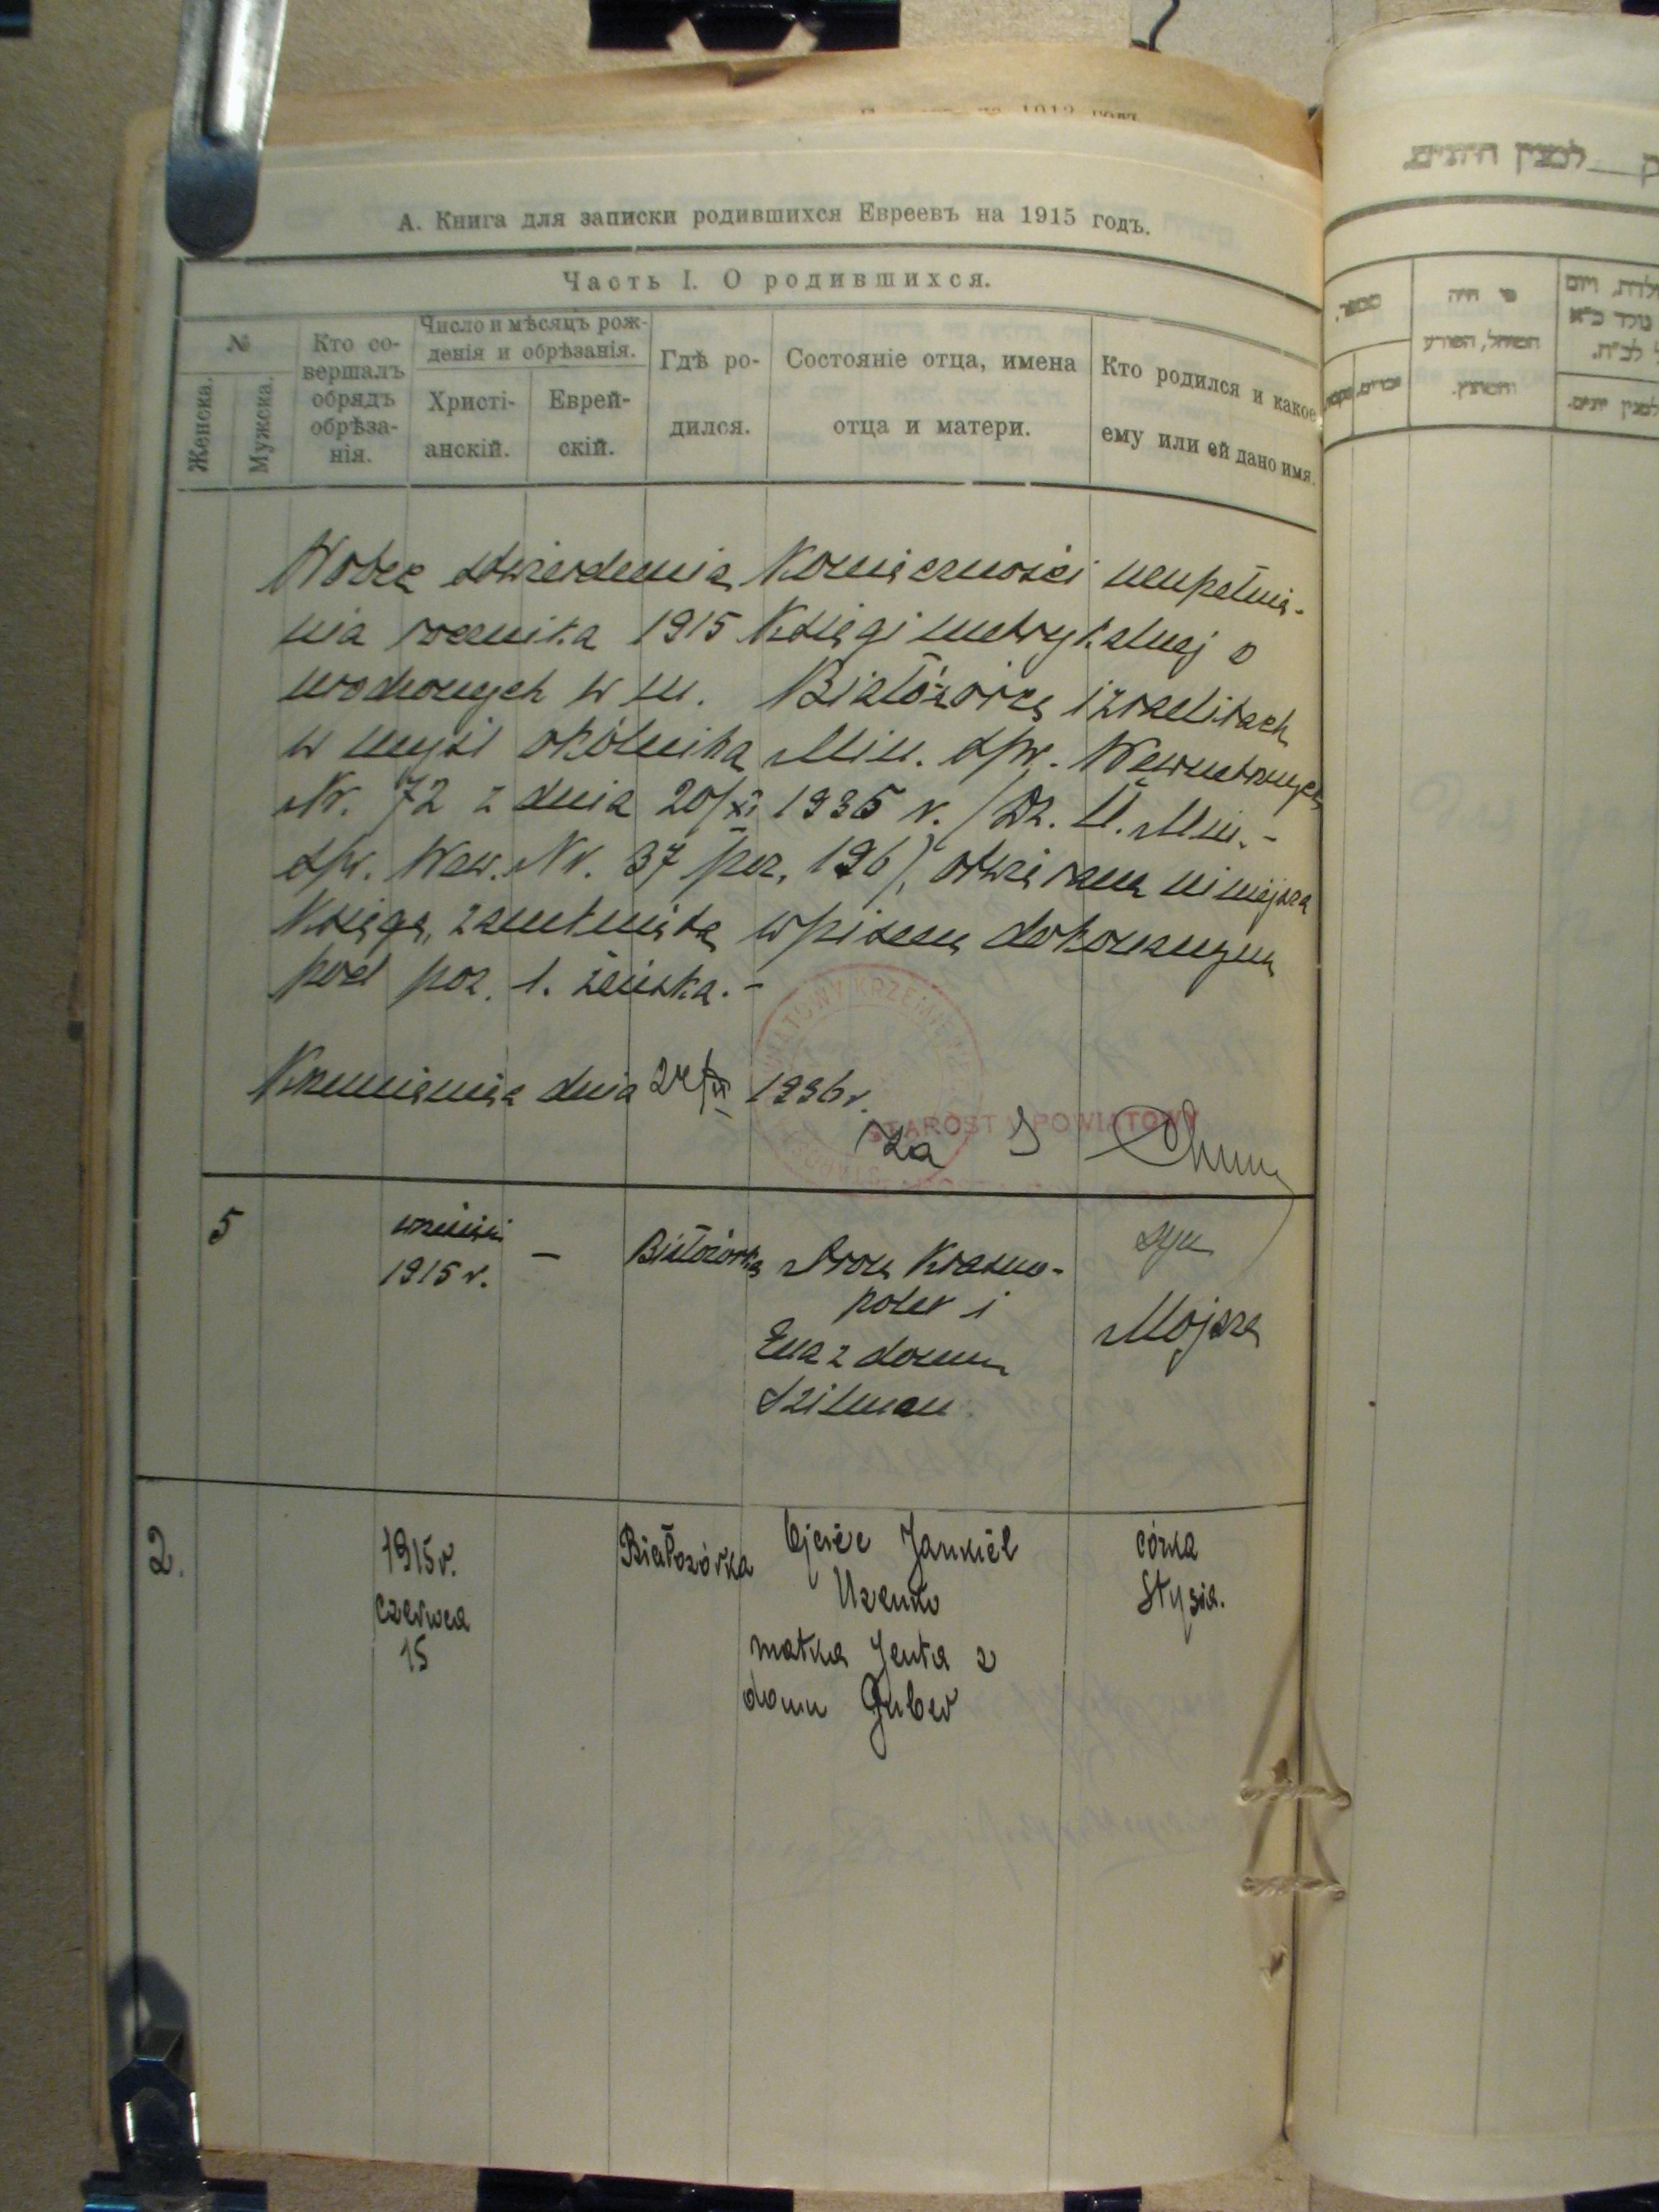 А. Книга для записки родившихся Евреевъ на 1915 годъ.
Часть I. О родившихся.
№
Женска.
Мужска.
Кто со-
вершалъ
обрядъ
обрѣза-
нія.
Число и мѣсяцъ рож-
денія и обрѣзанія.
Христі-
анскій.
Еврей-
скій.
Гдѣ ро-
дился.
Состояніе отца, имена
отца и матери.
Кто родился и какое
ему или ей дано имя.
Wobec stwierdzenia konieczności uzupełnie-
nia rocznika 1915 Księgi metrykalnej o
urodzonych w m. Białozórce izraelitach
w myśl okólnika Min. Spr. Wewnetrznych
Nr. 72 z dnia 20/XI 1935 r. /Dz. U. Min. -
Spr. Wew. Nr. 37 poz. 196/, otwieram niniejszą
Księgę, zamkniętą wpisem dokonanym
pod poz. 1. żeńska. -
Krzemieniec dnia 1936 r.
STAROSTA POWIATOWY
za
5
wrzesień
1915 r.
-
Białozórka
Aron Krasno-
poler i
z domu
Szilman
syn
Mojsze
2.
1915 r.
czerwca
15
Białozórka
Ojciec Jankiel
Uzenko
matka Jenta z
domu Guber
córka
Stysia.
למנין היונים